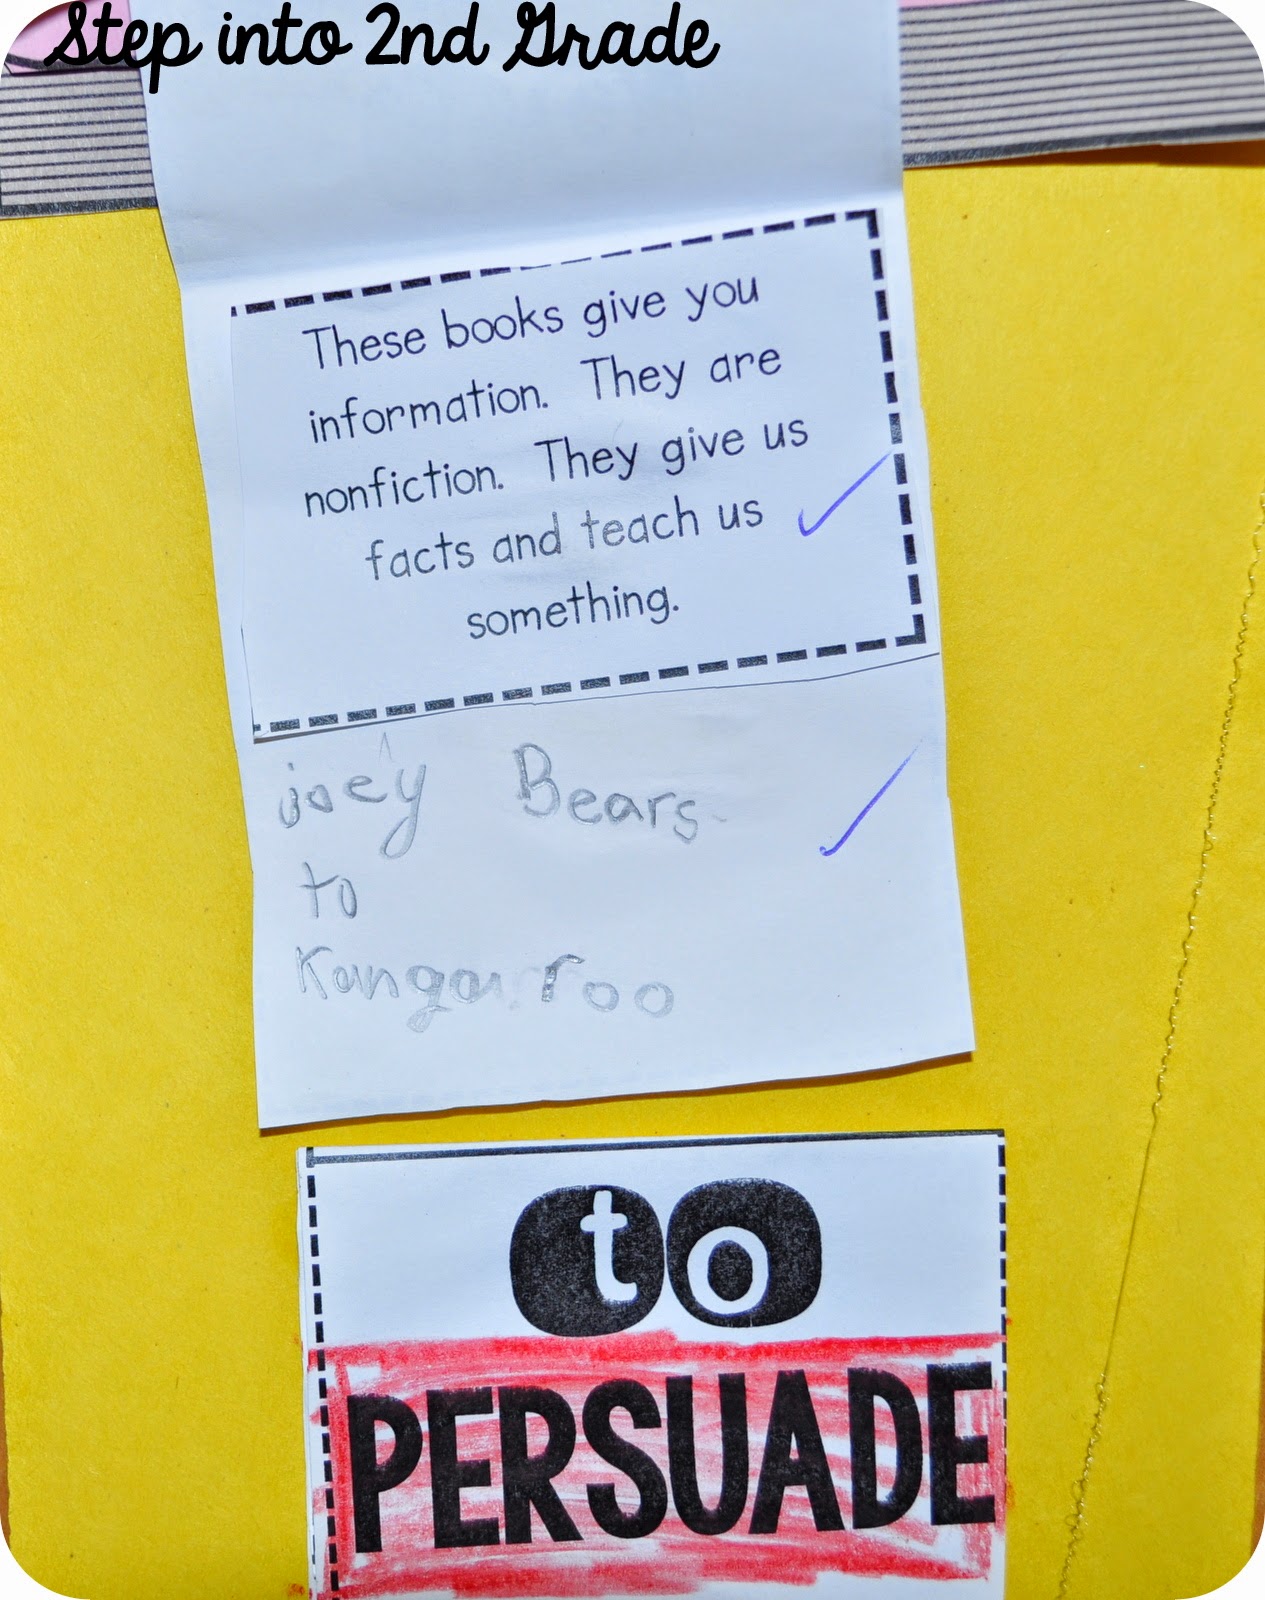 Step into 2nd Grade
These books give you
information. They are
nonfiction. They give us
facts and teach us
something.
joey Bears
to
Kangaroo
to
PERSUADE